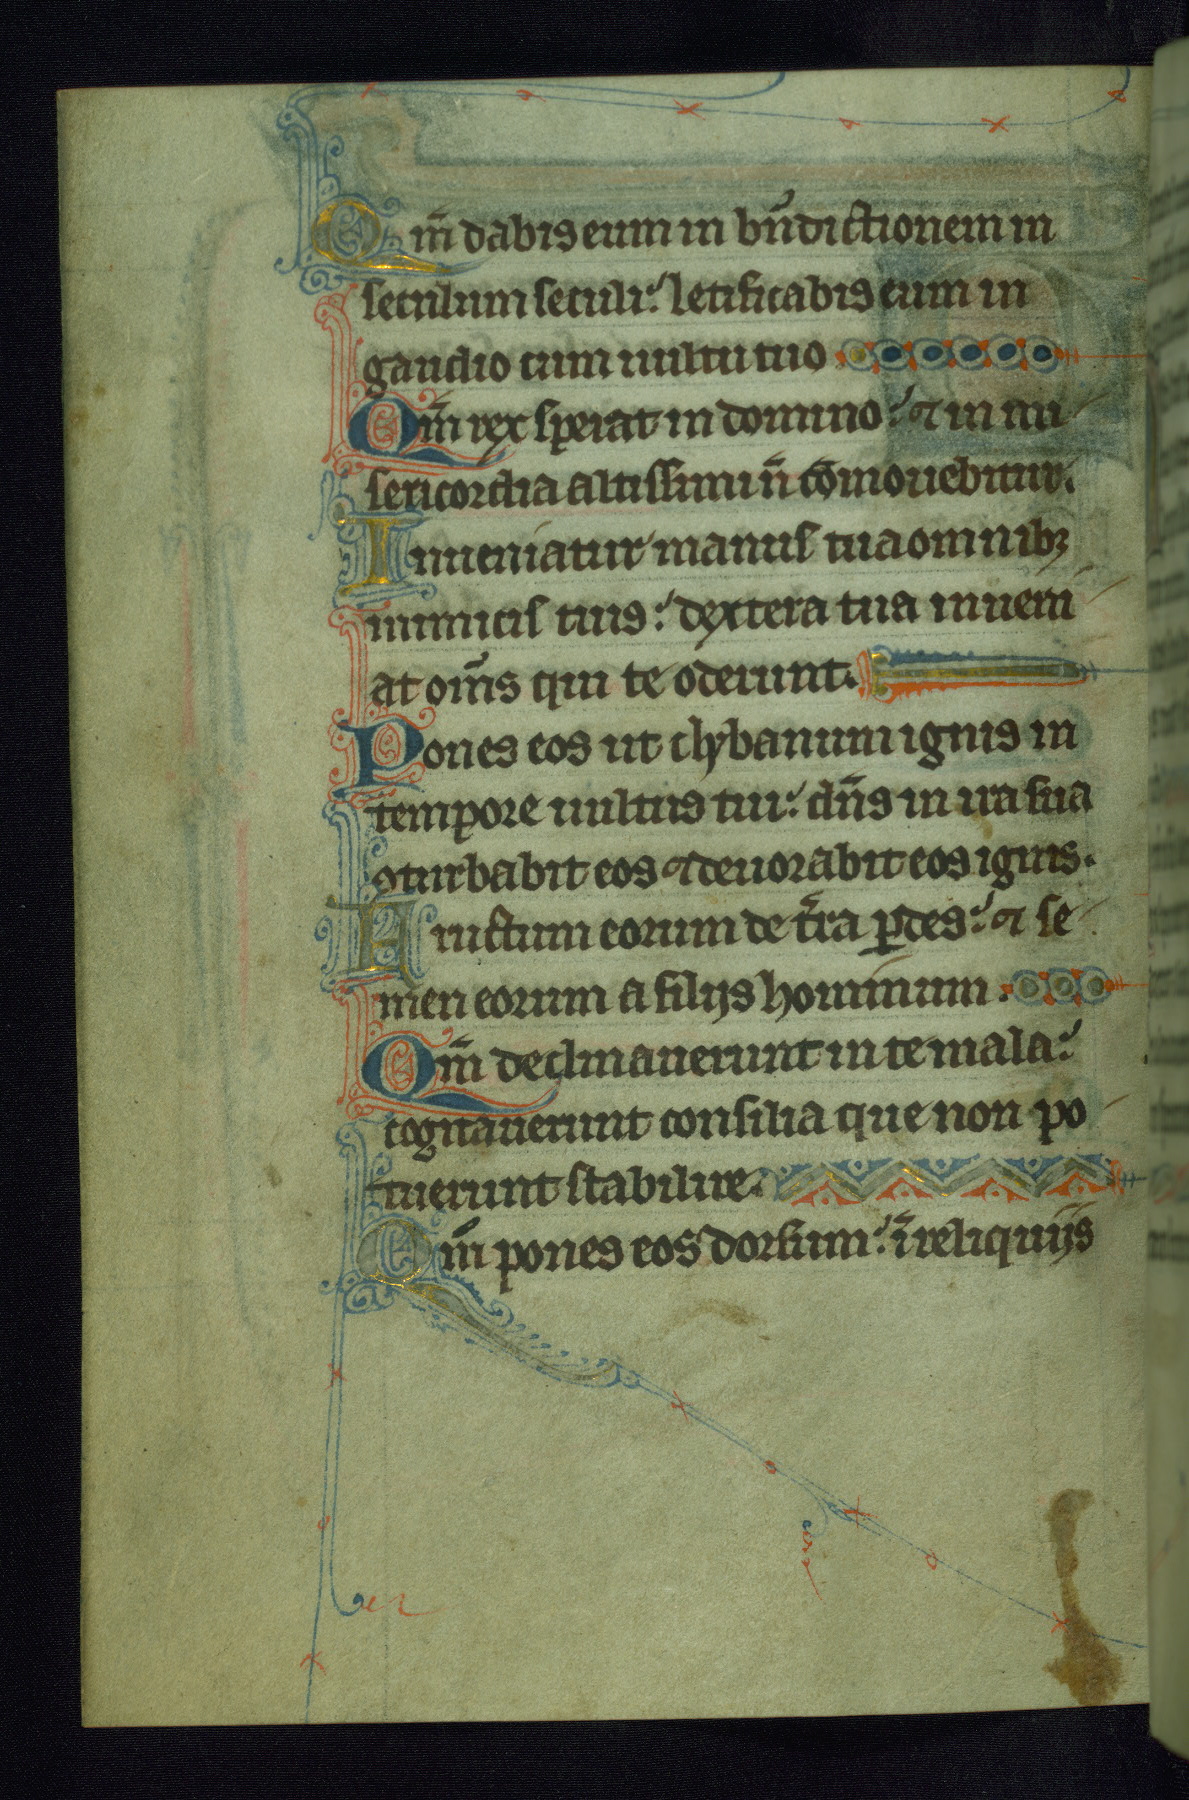 Qm̄ dabis eum in bn̄dictionem in
seculum seculi: letificabis eum in
gaudio cum uultu tuo
Qm̄ rex sperat in domino: ⁊ in mi
sericordia altissimi n̄ cōmouebitur.
Inueniatur manus tua omnibꝫ
inimicis tuis: dextera tua inueni
at om̄s qui te oderunt.
Pones eos ut clybanum ignis in
tempore uultus tui: dn̄s in ira sua
ꝯturbabit eos ⁊ deuorabit eos ignis.
Fructum eorum de t̄ra ꝑdes: ⁊ se
men eorum a filijs hominum.
Qm̄ declinauerunt in te mala:
cogitauerunt consilia que non po
tuerunt stabilire.
Qm̄ pones eos dorsum: ī reliquijs